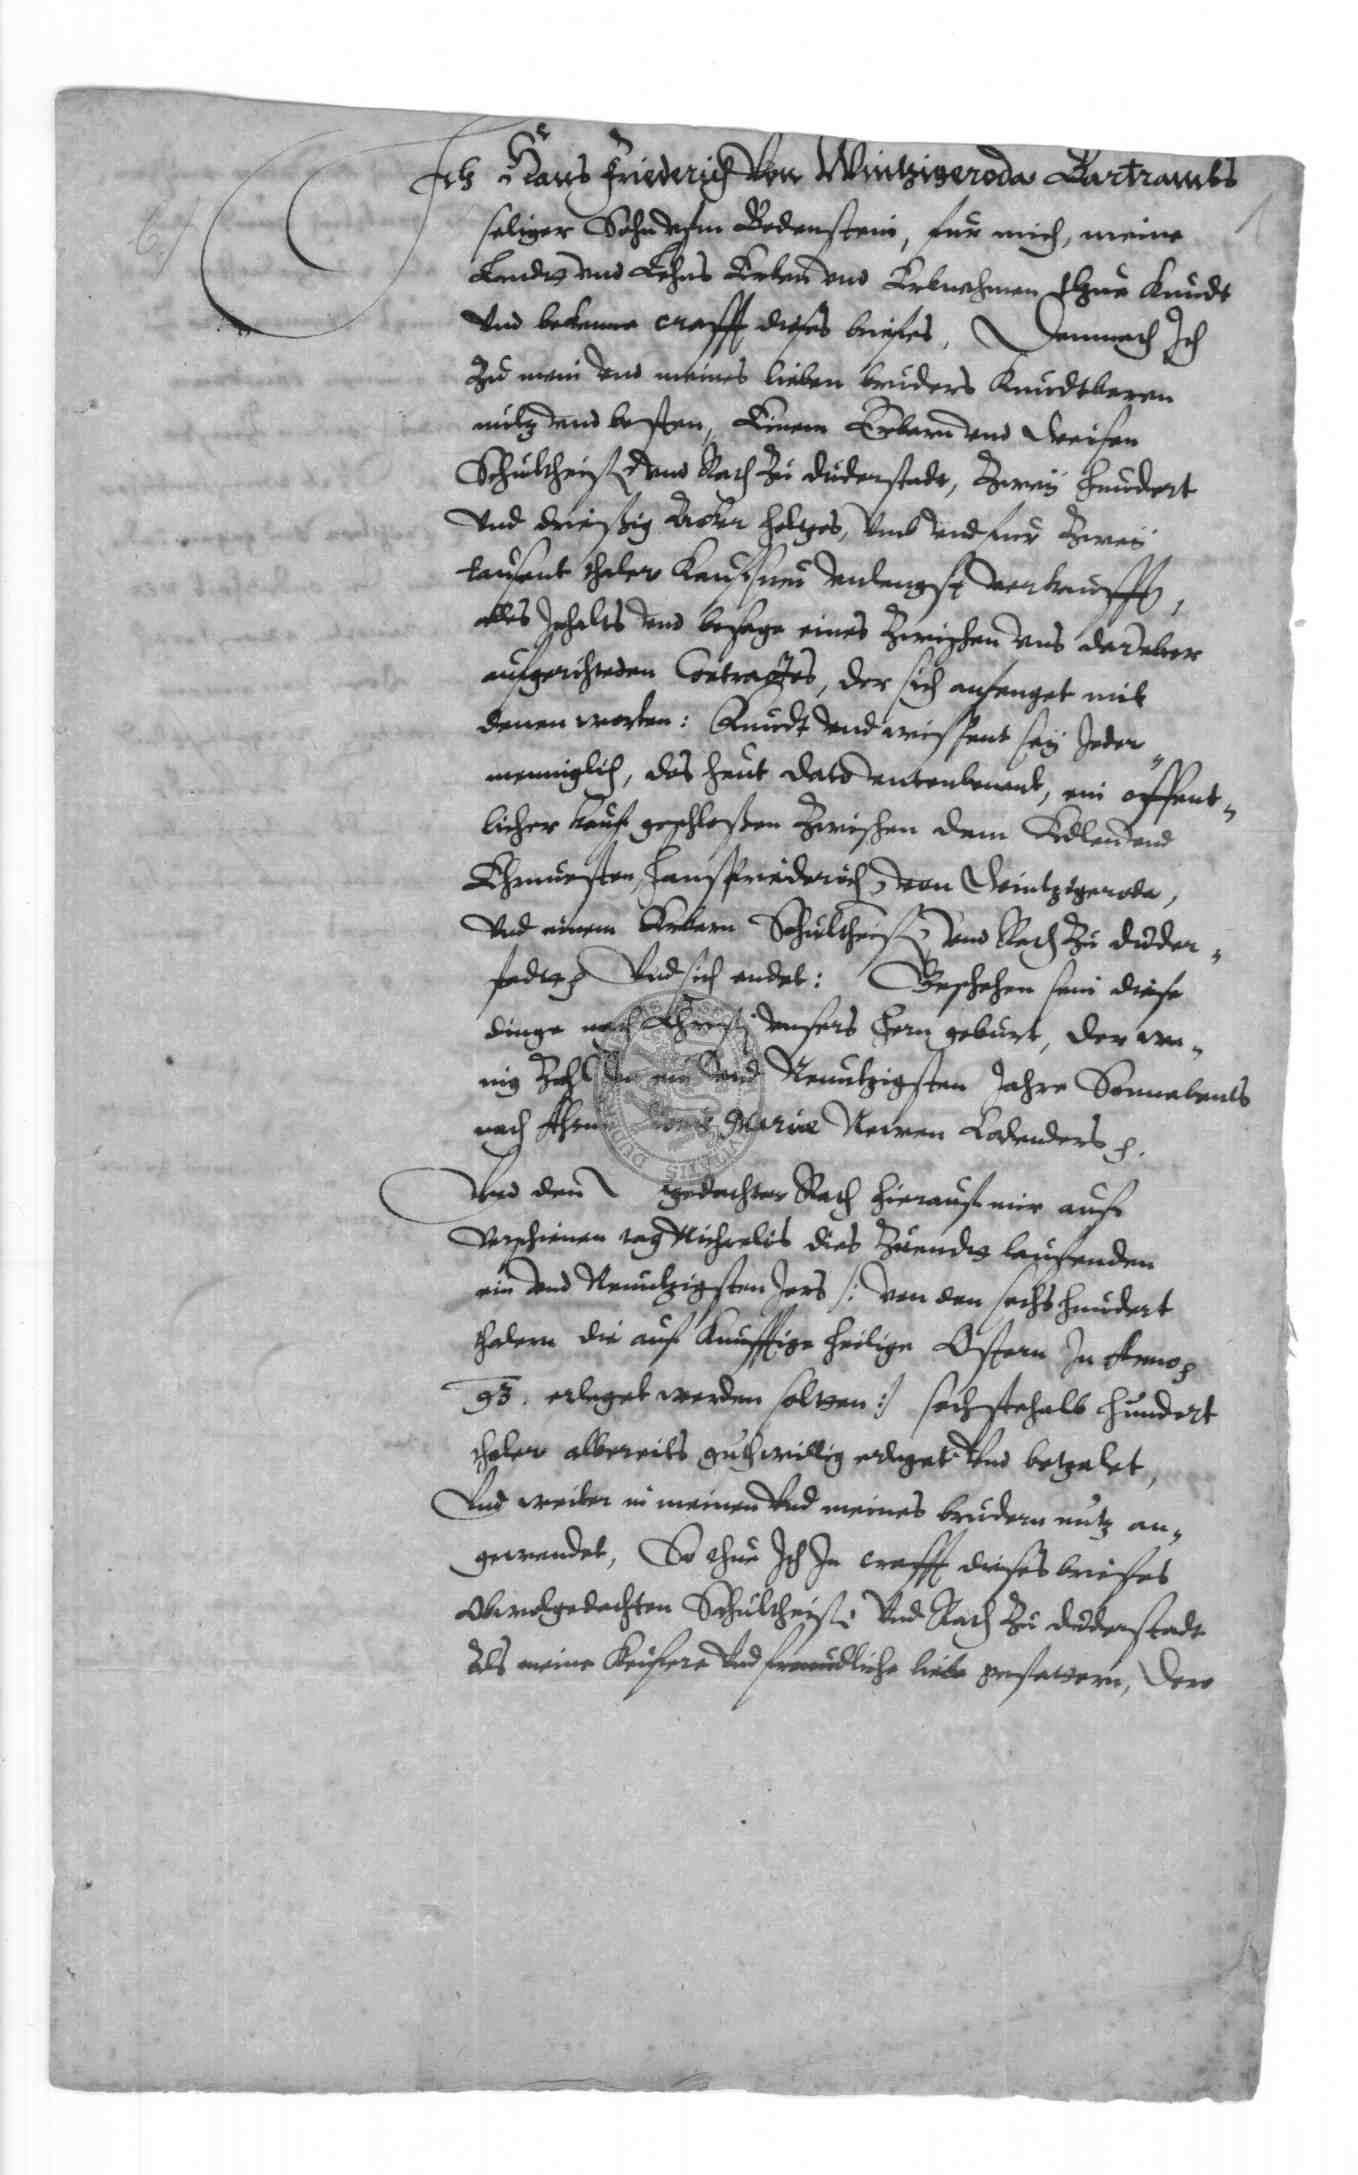 Ich Hans Friederich von Wintzigeroda Bartrambs
seliger Sohn vfm Bodenstein, fur mich, meine
Landt vnd Lehns Erben vnd Erbnehmen thue Kundt
vnd bekenne crafft dieses briefes, Demnach Ich
Zu mein vnd meines lieben bruders Kundtbaren
nutz vnd besten, Einem Erbarn vnd Weisen
Schultheiß vnd Rath Zu duderstadt, Zweÿ hundert
Vnd dreißig Acker holtzes, vmb vnd fur Zweÿ
tausent thaler Kauffsweis vnlengst verkaufft,
alles Inhalts vnd besage eines Zwischen vns daruber
aufgerichteden Contractes, der sich anfenget mit
denen worten: Kundt vnd wissent seÿ Jeder„
menniglich, das heut dato vntenbenant, ein offent„
licher kauf geschloßen Zwischen dem Edlen vnd
Ehrnuesten, Hans Friederich von Wintzigeroda,
Vnd einem Erbarn Schultheiß vnd Rath Zu duder„
stadt Vnd sich endet: Geschehen sein diese
dinge nach Christi vnsers Hern geburt, der we„
nig Zahl im ein vnd Neuntzigsten Jahre Sonnabents
nach Mariae Newen Kalenders
Vnd den gedachter Rath hierauf mir aufs
verschienen tag Michaelis dies Zuendt laufenden
ein vnd Neuntzigsten Jars /: von den sechs hundert
thalern die auf Kunfftige heilige Ostern In Anno
93. erleget werden solten :/ sechstehalb hundert
thaler albereits gutwillig erleget Vnd betzalet,
Vnd weiter in meinen Vnd meines brudern nutz an„
gewendet, So thue Ich In crafft dieses briefes
Obwolgedachten Schultheiß Vnd Rath Zu duderstadt
Als meine Keufere Vnd freundliche liebe , Dero